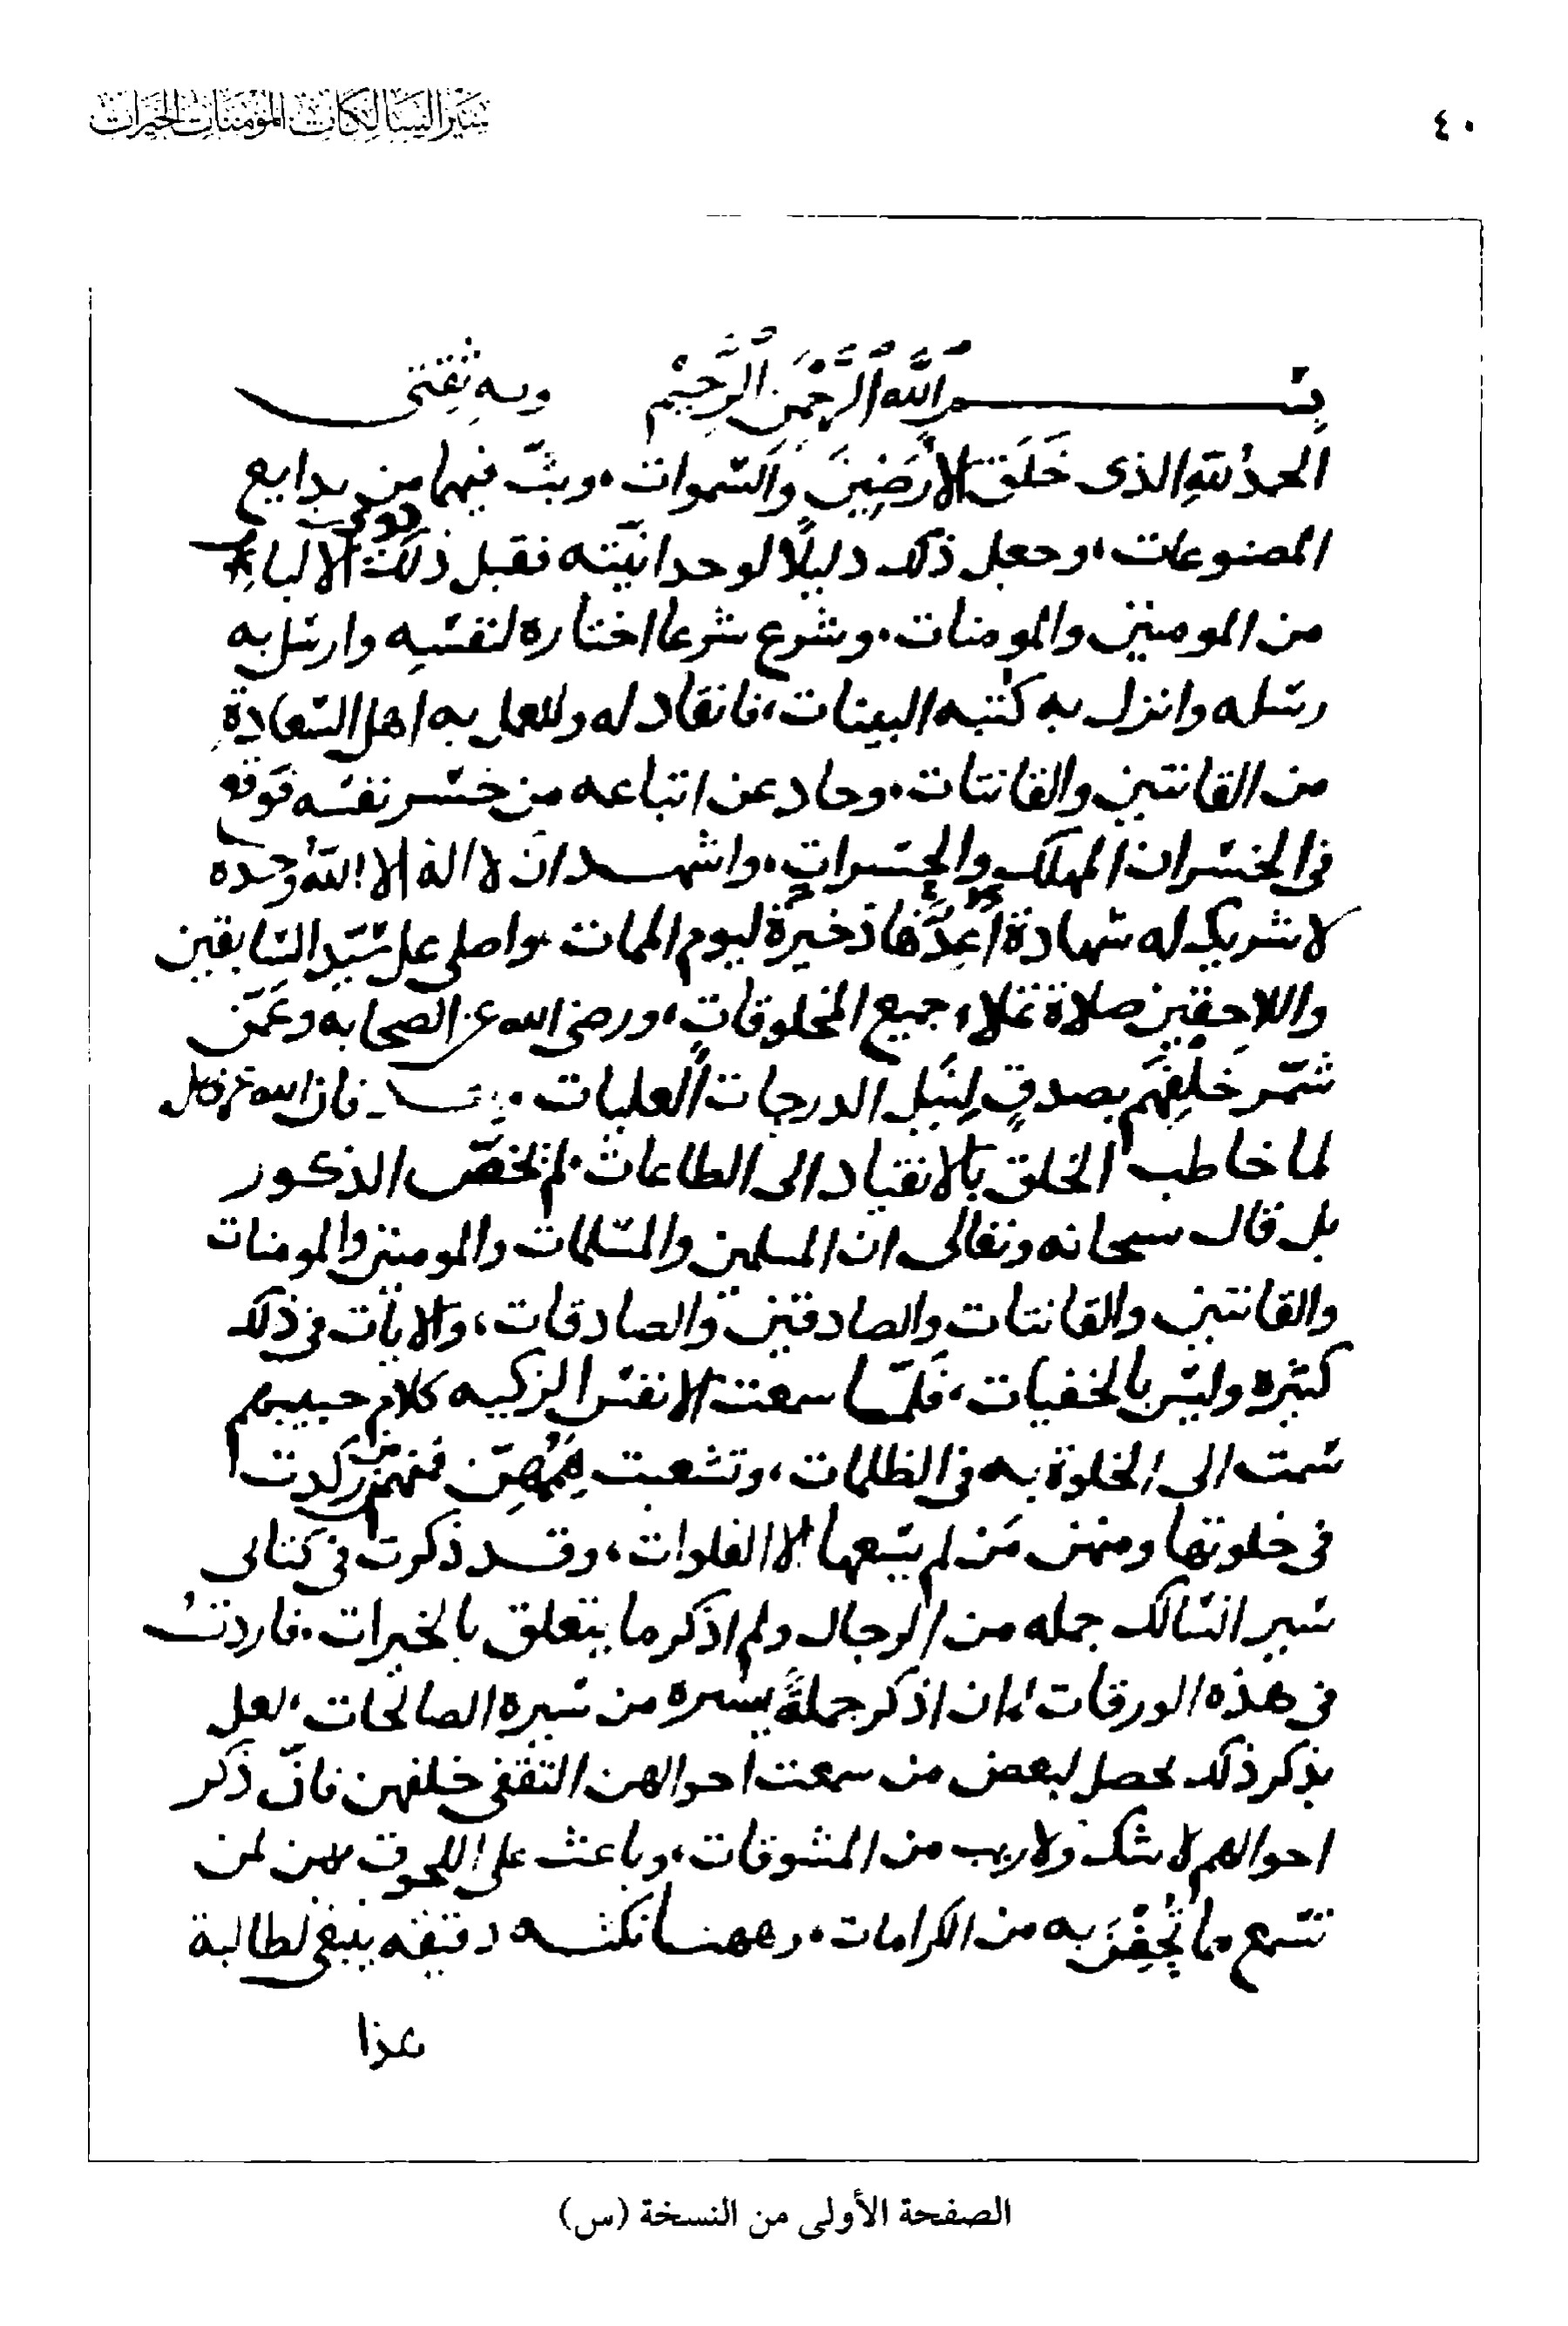 ٤٠
سير السالكات المؤمنات الخيرات
بسم الله الرحمن الرحيم وبه ثقتي
الحمد لله الذى خَلَق الأرَضِينَ والسموات، وبثّ فيهما من بدايع
المصنوعات، وجعل ذلك دليلًا لوحدانيّته فقبل ذلك ذووا الالباب
من المومنين والمومنات، وشرع شرعا اختاره لنفسه وارسل به
رسله وانزل به كتبه البينات، فانقاد له وللعمل به اهل السّعادة
من القانتين والقانتات، وحاد عن اتباعه من خسر نفسه فوقع
فى الخسران المهلك والحسرات، واشهد ان لا اله الا الله وحده
لا شريك له شهادة أعدّها ذخيرة ليوم الممات، واصلى على سيّد السّابقين
واللاحقين صلاة تملاء جميع المخلوقات، ورضى الله عن الصحابه وعمّن
شمّر خلفهم بصدقٍ لنيل الدرجات العليات، وبعد فان الله عز وجل
لما خاطب الخلق بالانقياد الى الطاعات، لم يخصّ الذكور
بل قال سبحانه وتعالى ان المسلمين والمسلمات والمومنين والمومنات
والقانتين والقانتات والصادقين والصادقات، والايات فى ذلك
كثيره وليس بالخفيات، فلمّا سمعت الانفس الزكيه كلام حبيبهم
سمت الى الخلوة به فى الظلمات، وتشعبت هِمَمُهِنّ فمنهنّ من ركدت
فى خلوتها ومنهن مَن لم يسعها الا الفلوات، وقد ذكرت فى كتابى
سير السالك جمله من الرجال ولم اذكر ما يتعلق بالخيرات، فاردتُ
فى هذه الورقات ان اذكر جملةً يسيرة من سيرة الصالحات، لعل
بذكر ذلك يحصل لبعض من سمعت احوالهن التقفى خلفهن فانّ ذكر
احوالهم لا شك ولا ريب من المشوقات، وباعث على اللحوق بهن لمن
تسمع ما تُحِفْنَ به من الكرامات، وههنا نكته دقيقه ينبغى لطالبة
هذا
الصفحة الأولى من النسخة (س)